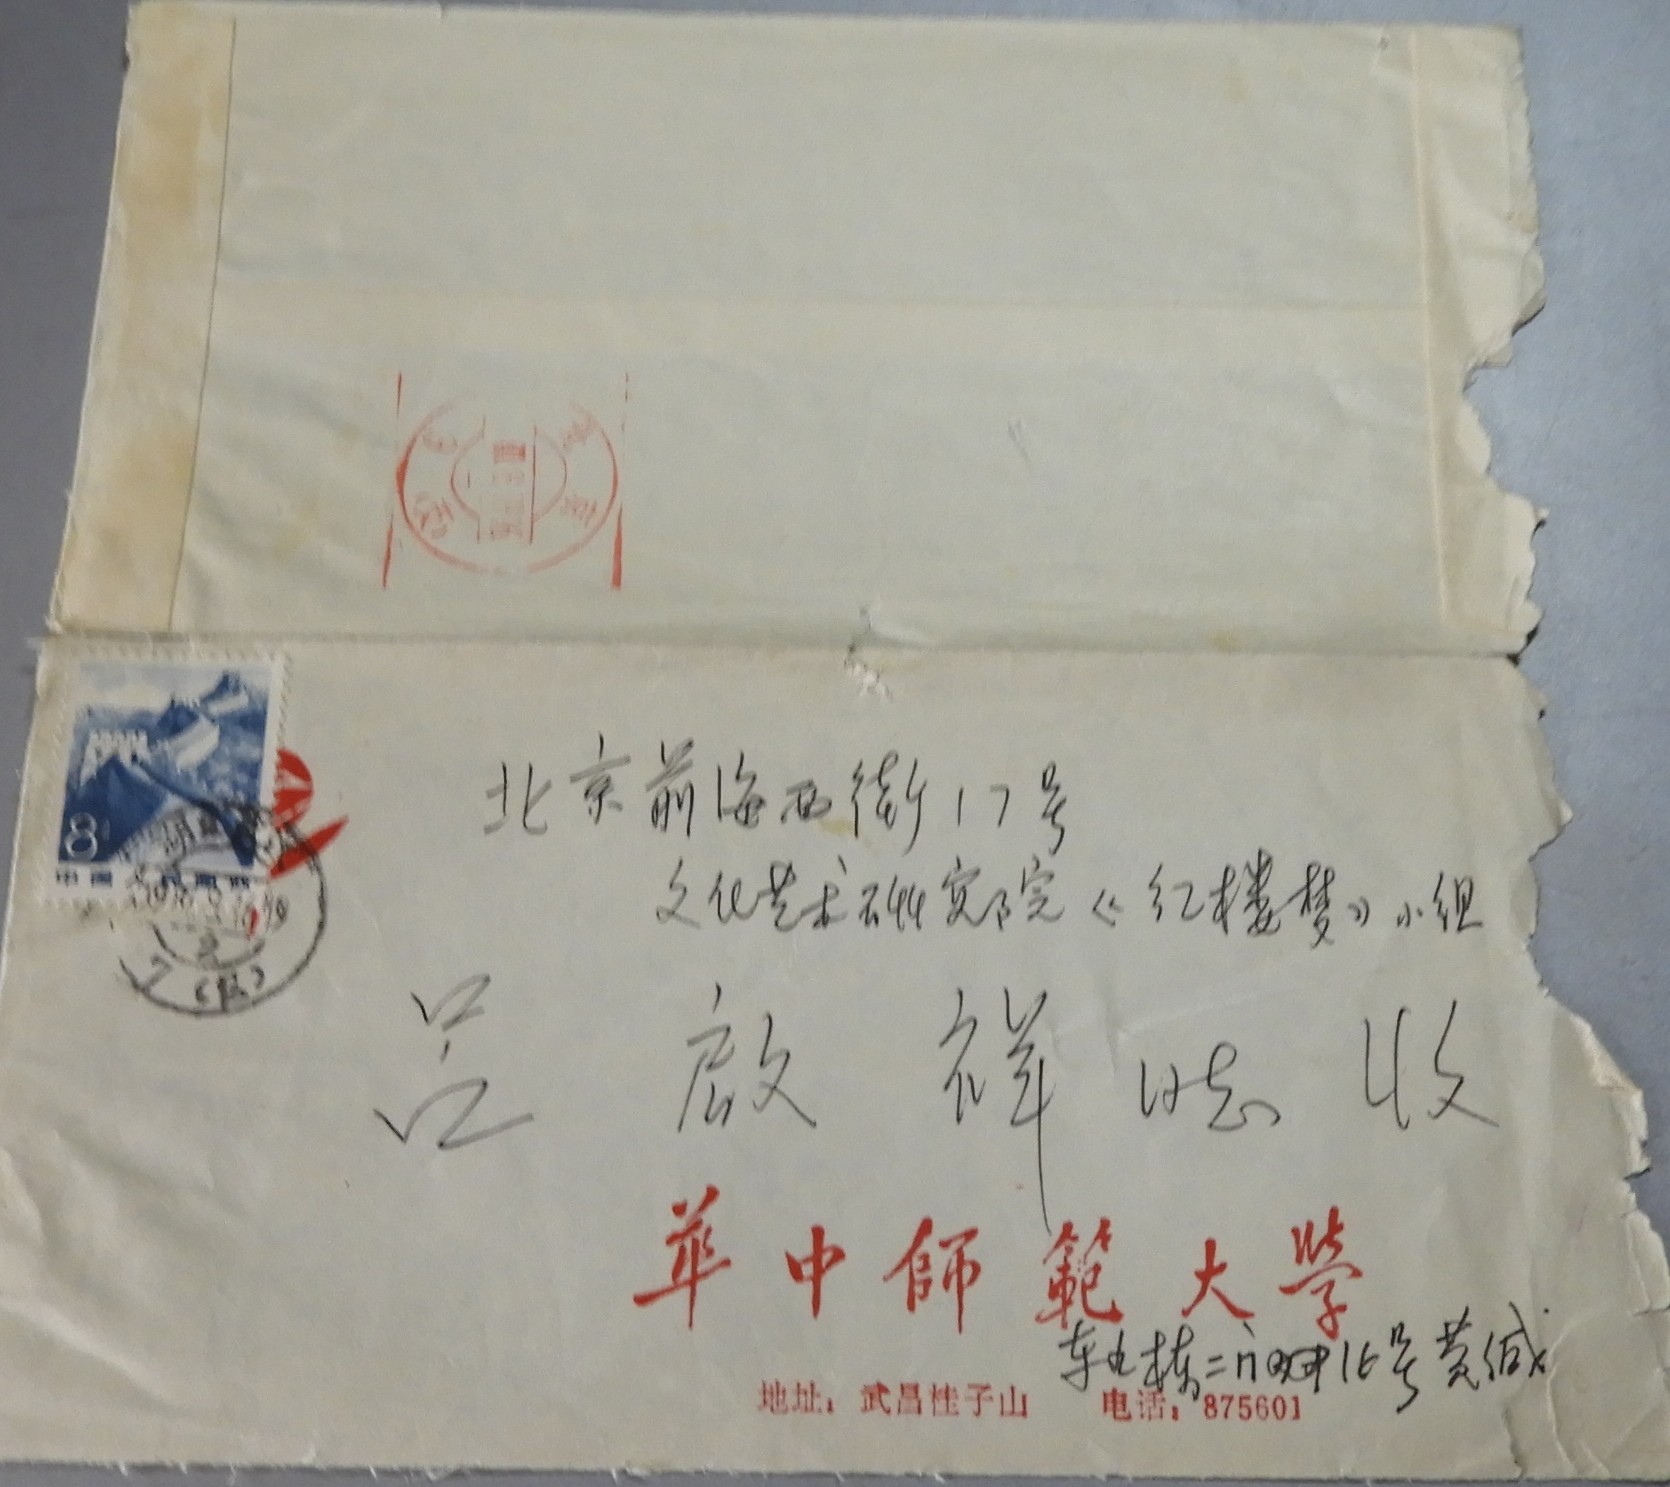 北京
8
中国人民邮政
北京前海西街17号
文化艺术研究院《红楼梦》小组
吕启祥同志收
華中師範大學
东九栋二门四楼16号黄缄
地址：武昌桂子山 电话：875601